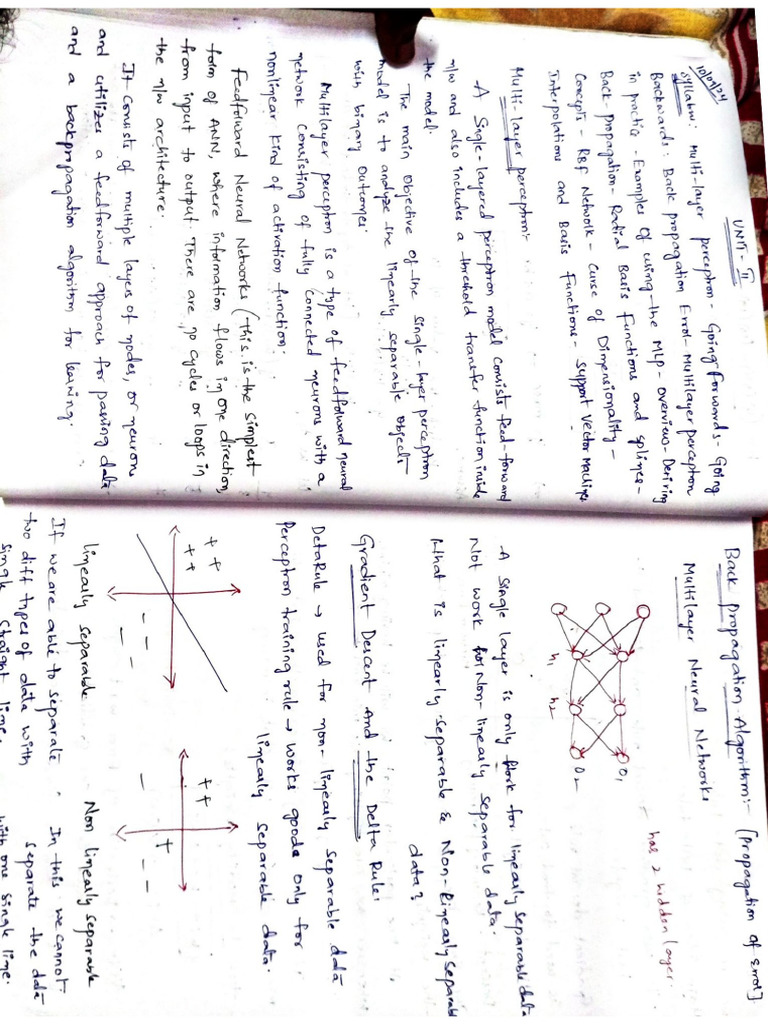 10/09/24
UNIT - II
Syllabus: Multi-layer perceptron - Going Forwards - Going
Backwards: Back propagation Error - Multilayer perception
in practice - Examples of using the MLP - overview - Deriving
Back-Propagation - Radial Basis Functions and splines -
Concepts - RBF Network - Curse of Dimensionality -
Interpolations and Basis Functions - Support Vector Machines
Multi-layer perceptron:-
A Single-layered perceptron model consists feed-forward
n/w and also includes a threshold transfer function inside
the model.
The main objective of the single-layer perceptron
model is to analyze the linearly separable objects
with binary outcomes.
Multilayer perceptron is a type of feedforward neural
network consisting of fully connected neurons with a
nonlinear kind of activation function.
Feedforward Neural Networks (this is the simplest
form of ANN, where information flows in one direction,
from input to output. There are no cycles or loops in
the n/w architecture.
It consists of multiple layers of nodes, or neurons
and utilizes a feedforward approach for passing data
and a backpropagation algorithm for learning.
Back Propagation Algorithm:- [Propagation of Error]
Multilayer Neural Networks
- has 2 hidden layer
O1
O2
h1 h2
A single layer is only work for linearly separable data
Not work for Non-linearly separable data.
What is linearly separable & Non-linearly separable
data?
Gradient Descent And the Delta Rule:
DetaRule → used for non-linearly separable data
Perceptron training rule → works goods only for
linearly separable data.
+ +
+ +
- -
- -
+ +
+ +
-
+ - -
linearly separable
Non linearly separable
If we are able to separate
two diff types of data with
single straight line.
In this we cannot
separate the data
with one single line.